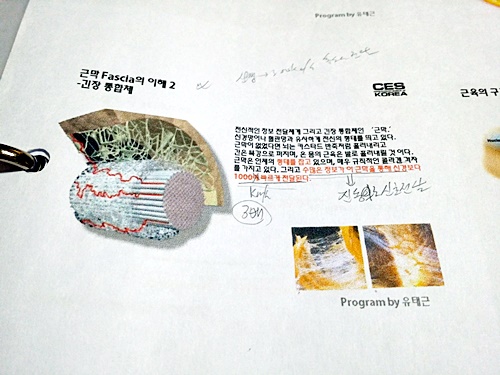 Program by 유태근
근막 Fascia의 이해 2
-긴장 통합체
CES
KOREA
근육의 구
전신적인 정보 전달체계 그리고 긴장 통합체인 "근막."
신경망이나 혈관망과 유사하게 전신의 형태를 띄고 있다.
근막이 없었다면 뇌는 커스타드 반죽처럼 흘러내리고
간은 복강으로 퍼지며, 온 몸의 근육은 별로 흘러내릴 것 이다.
근막은 인체의 형태를 잡고 있으며, 매우 규칙적인 콜라겐 격자
를 가지고 있다. 그리고 수많은 정보가 이 근막을 통해 신경보다
1000배 빠르게 전달된다.
km/h
진동으로 신호전달
Program by 유태근